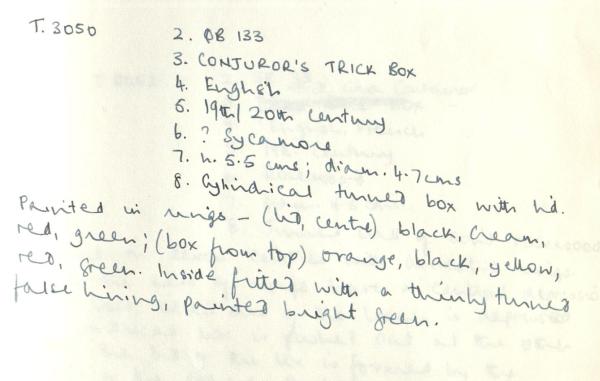 T. 3050
2. QB 133
3. CONJUROR'S TRICK BOX
4. English
5. 19th/20th century
6. ? Sycamore
7. h. 5.5 cms; diam. 4.7 cms
8. Cylindrical turned box with lid.
Painted in rings – (lid, centre) black, cream,
red, green; (box from top) orange, black, yellow,
red, green. Inside fitted with a thinly turned
false lining, painted bright green.